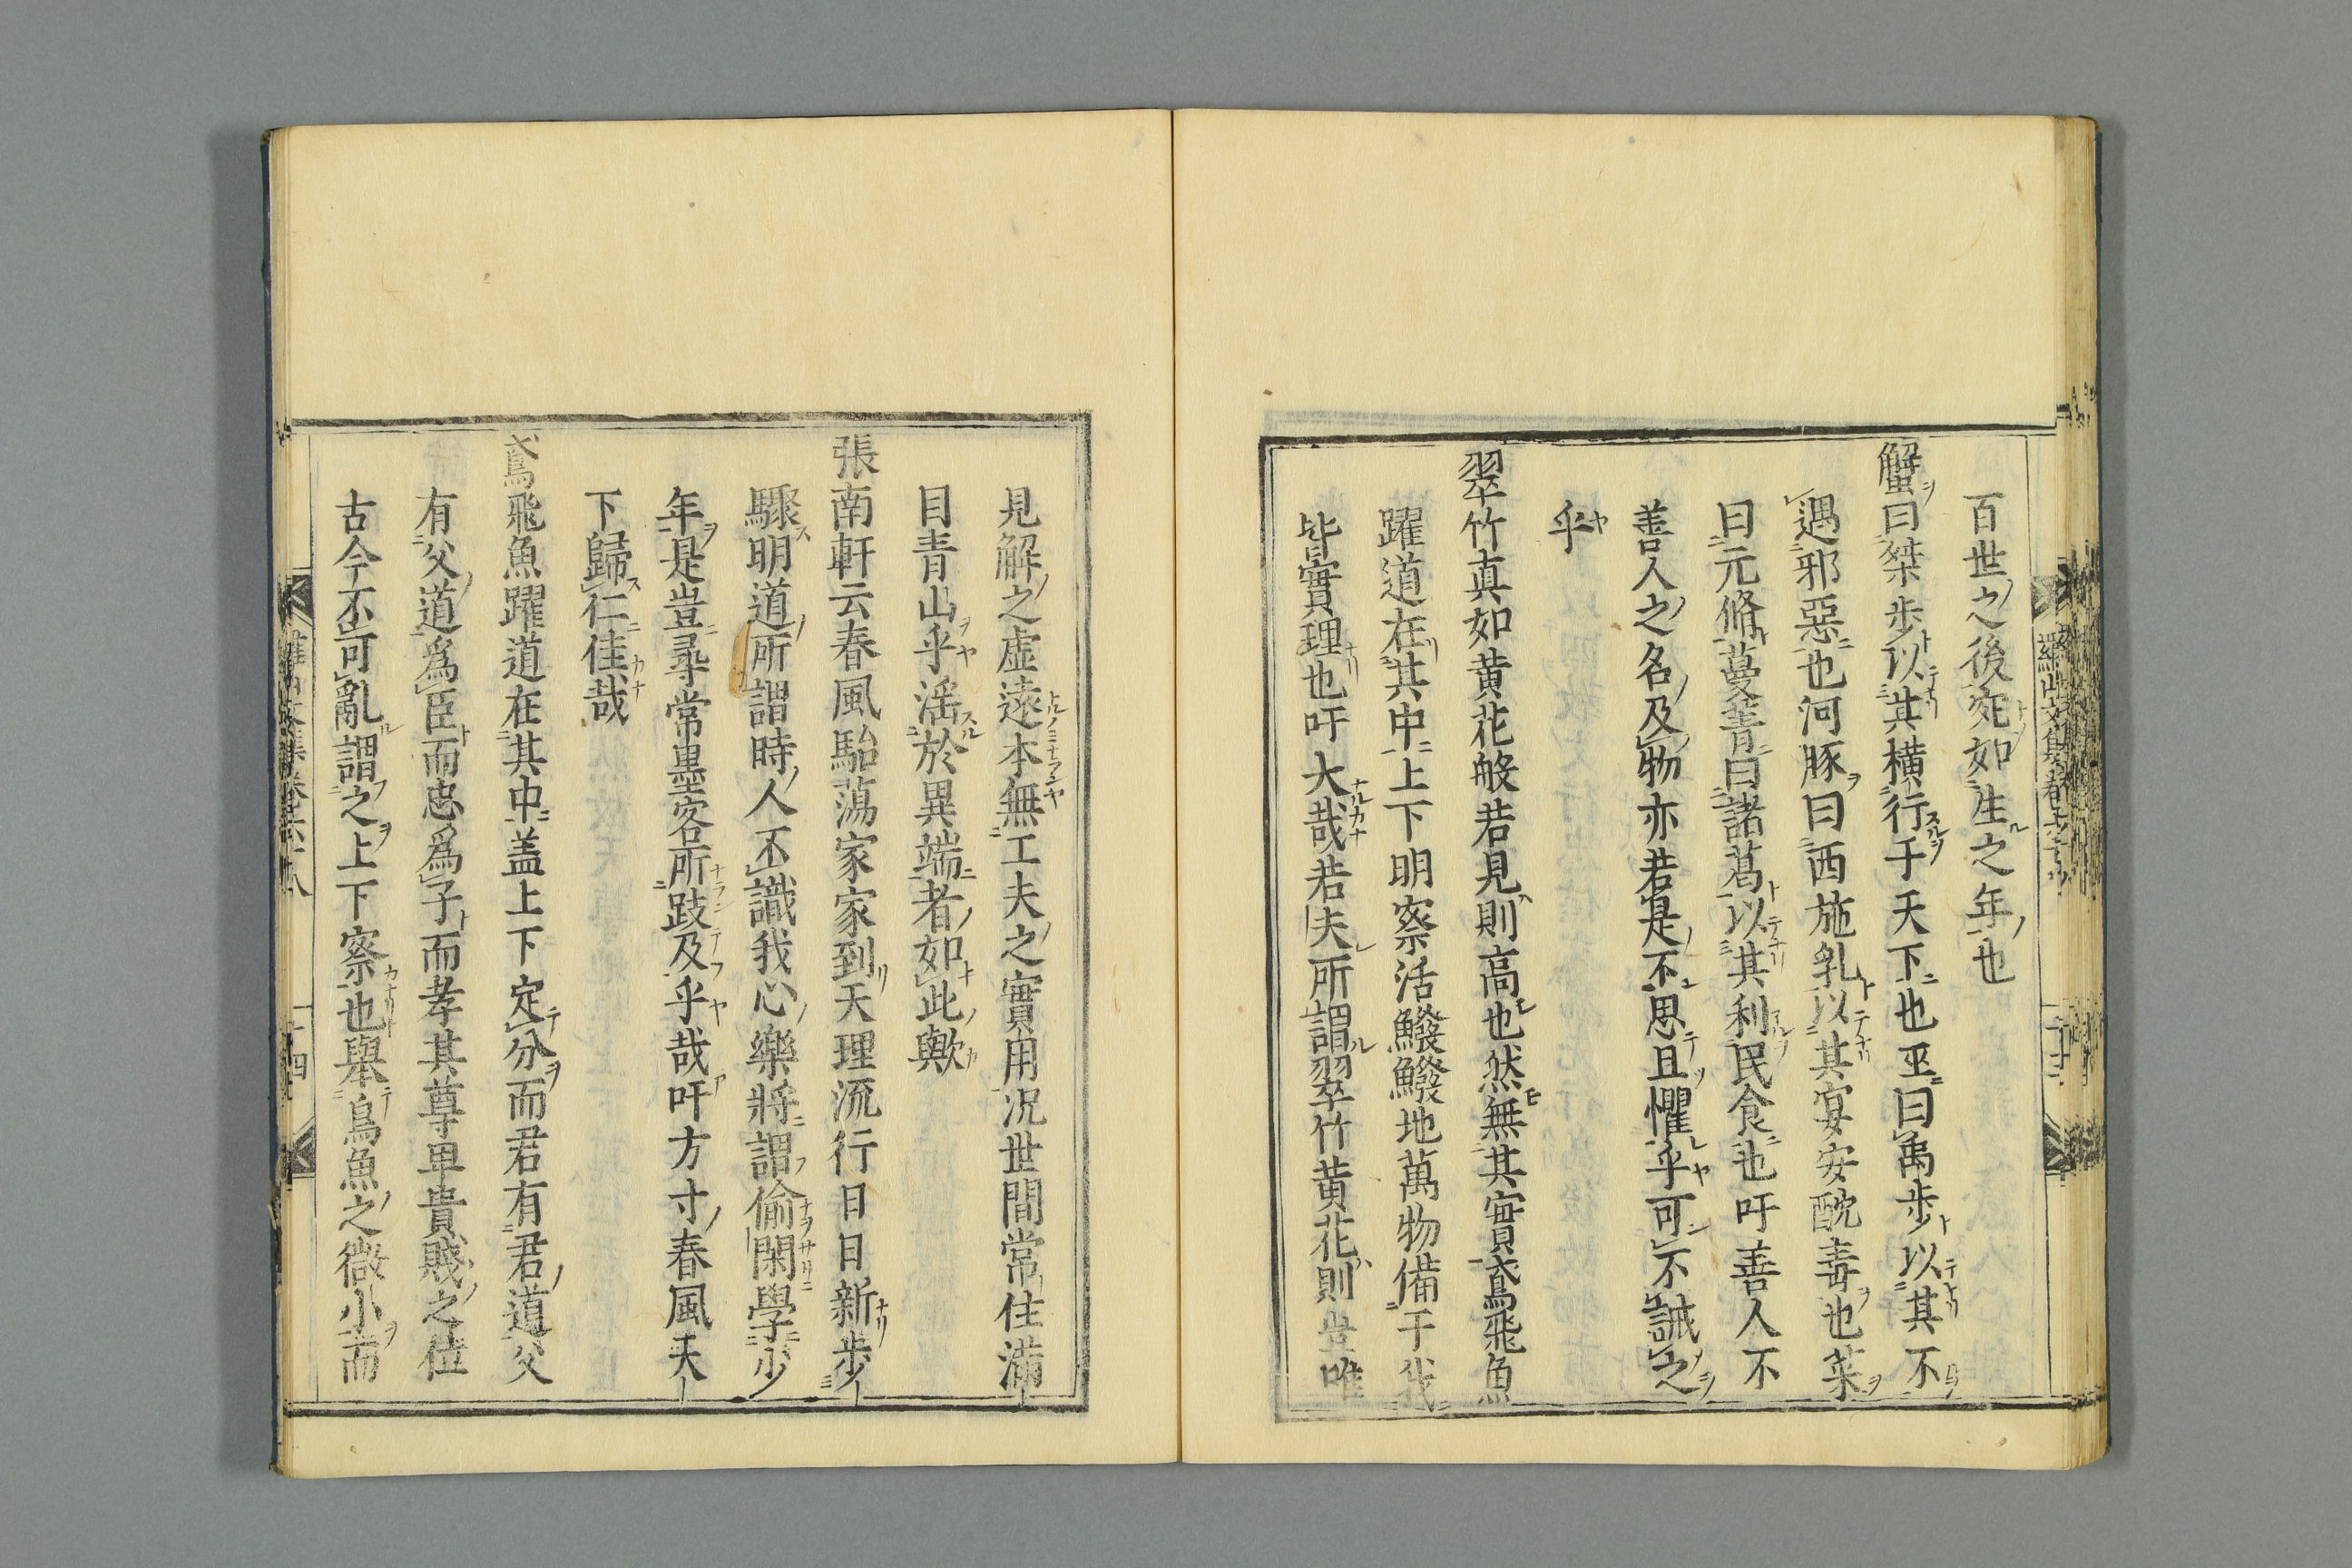 百世之後宛如生之年也
蟹曰桀步以其橫行于天下也巫曰禹步以其不
遇邪惡也河豚曰西施乳以其宴安酖毒也菜
曰元脩蔓菁曰諸葛以其利民食也吁善人不
善人之名及物亦若是不思且懼乎可不誡之
乎
翠竹真如黃花般若見則高也然無其實鳶飛魚
躍道在其中上下明察活鱍鱍地萬物備于我
皆實理也吁大哉若夫所謂翠竹黃花則豈唯
見解之虛遠本無工夫之實用況世間常住滿
目青山乎淫於異端者如此歟
張南軒云春風駘蕩家家到天理流行日日新步
驟明道所謂時人不識我心樂將謂偷閑學少
年是豈尋常墨客所跂及乎哉吁方寸春風天
下歸仁佳哉
鳶飛魚躍道在其中盖上下定分而君有君道父
有父道爲臣而忠爲子而孝其尊卑貴賤之位
古今不可亂謂之上下察也舉鳥魚之微小而